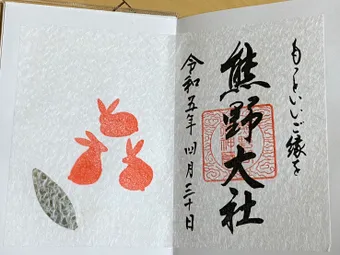 もっといいご縁を
熊野大社
令和五年四月三十日